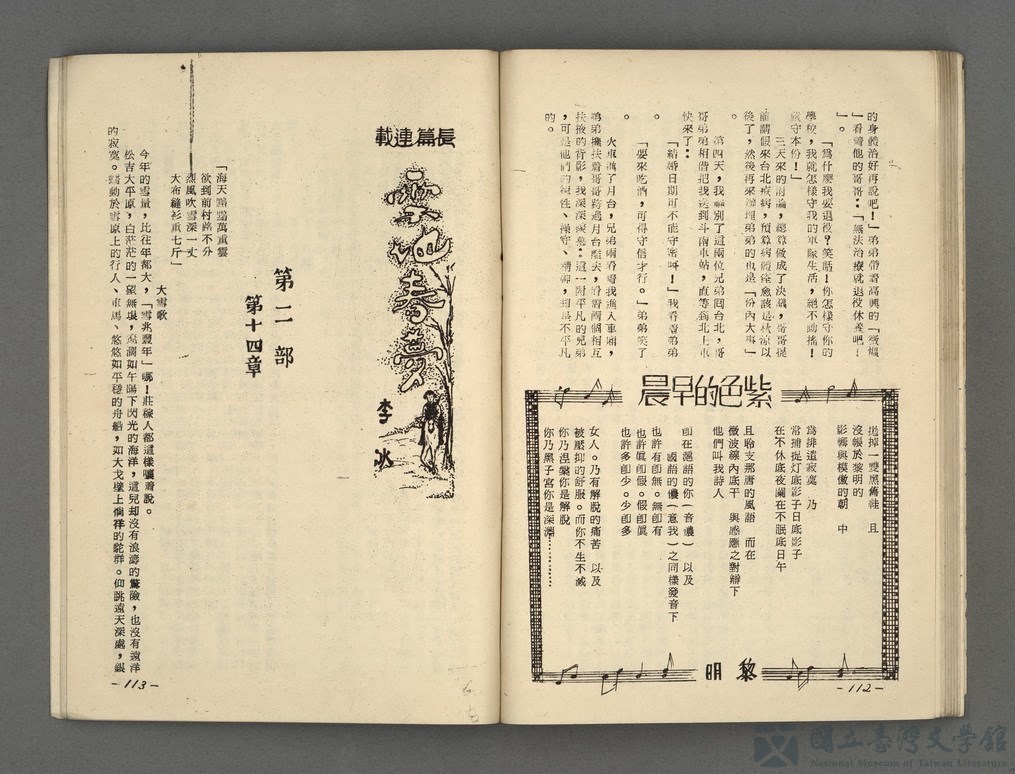 的身體治好再說吧！」弟弟帶着高興的
」看着他的哥哥：「無法治療就退役休養吧！
」。
「爲什麼我要退役？笑話！你怎樣守你的
學校，我就怎樣守我的軍隊生活，絕不動搖！
嚴守本份！」
三天來的討論，總算做成了決議，哥哥提
前請假來台北療病，預算病體痊愈該是秋涼以
後了，然後再來辦理弟弟的也是「份內大事」
。
第四天，我辭別了這兩位兄弟回台北，哥
哥弟弟相偕把我送到斗南車站，直等到北上車
快來了：
「結婚日期可不能守密呀！」我看着弟弟
。
「要來吃酒，可得守信才行。」弟弟笑了
。
火車離了月台，兄弟兩看着我進入車廂，
弟弟攙扶着哥哥跨過月台離去，看着兩個相互
扶掖的背影，我深深疑惑：這一對平凡的兄弟
，可是他們的極性、操守、精神，到是不平凡
的。
紫色的早晨
拋掉一雙黑膚鞋　且
沒帳於黎明的
影響與模倣的朝　中
爲排遣寂寞　乃
常捕捉灯底影子日底影子
在不休底夜闌在不眠底日午
且聆支那唐的風語　而在
微波縠內底干　與感應之對辯下
他們叫我詩人
卽在滬語的你（音儂）以及
國語的儂（意我）之同樣發音下
也許有卽無。無卽有
也許眞卽假。假卽眞
也許多卽少。少卽多
女人。乃有解脫的痛苦　以及
被壓抑的舒服。而你不生不滅
你乃涅槃你是解脫
你乃黑子宮你是深淵…………
黎明
-112-
長篇連載
李冰
第二部
第十四章
「海天蹣躇萬重雲
欲到前村路不分
烈風吹雪深一丈
大布縫衫重七斤」
大雪歌
今年的雪量，比往年都大，「雪兆豐年」哪！莊稼人都這樣嚷着說。
松吉大平原，白茫茫的一望無垠，瀉瀾如午陽下閃光的海洋，這兒却沒有浪濤的驚險，也沒有遠洋
的寂寞。蠕動於雪原上的行人、車馬、悠悠如平穩的舟船，如大戈壁上徜徉的駝群。仰眺遠天深處，銀
-113-
國立臺灣文學館
National Museum of Taiwan Literature